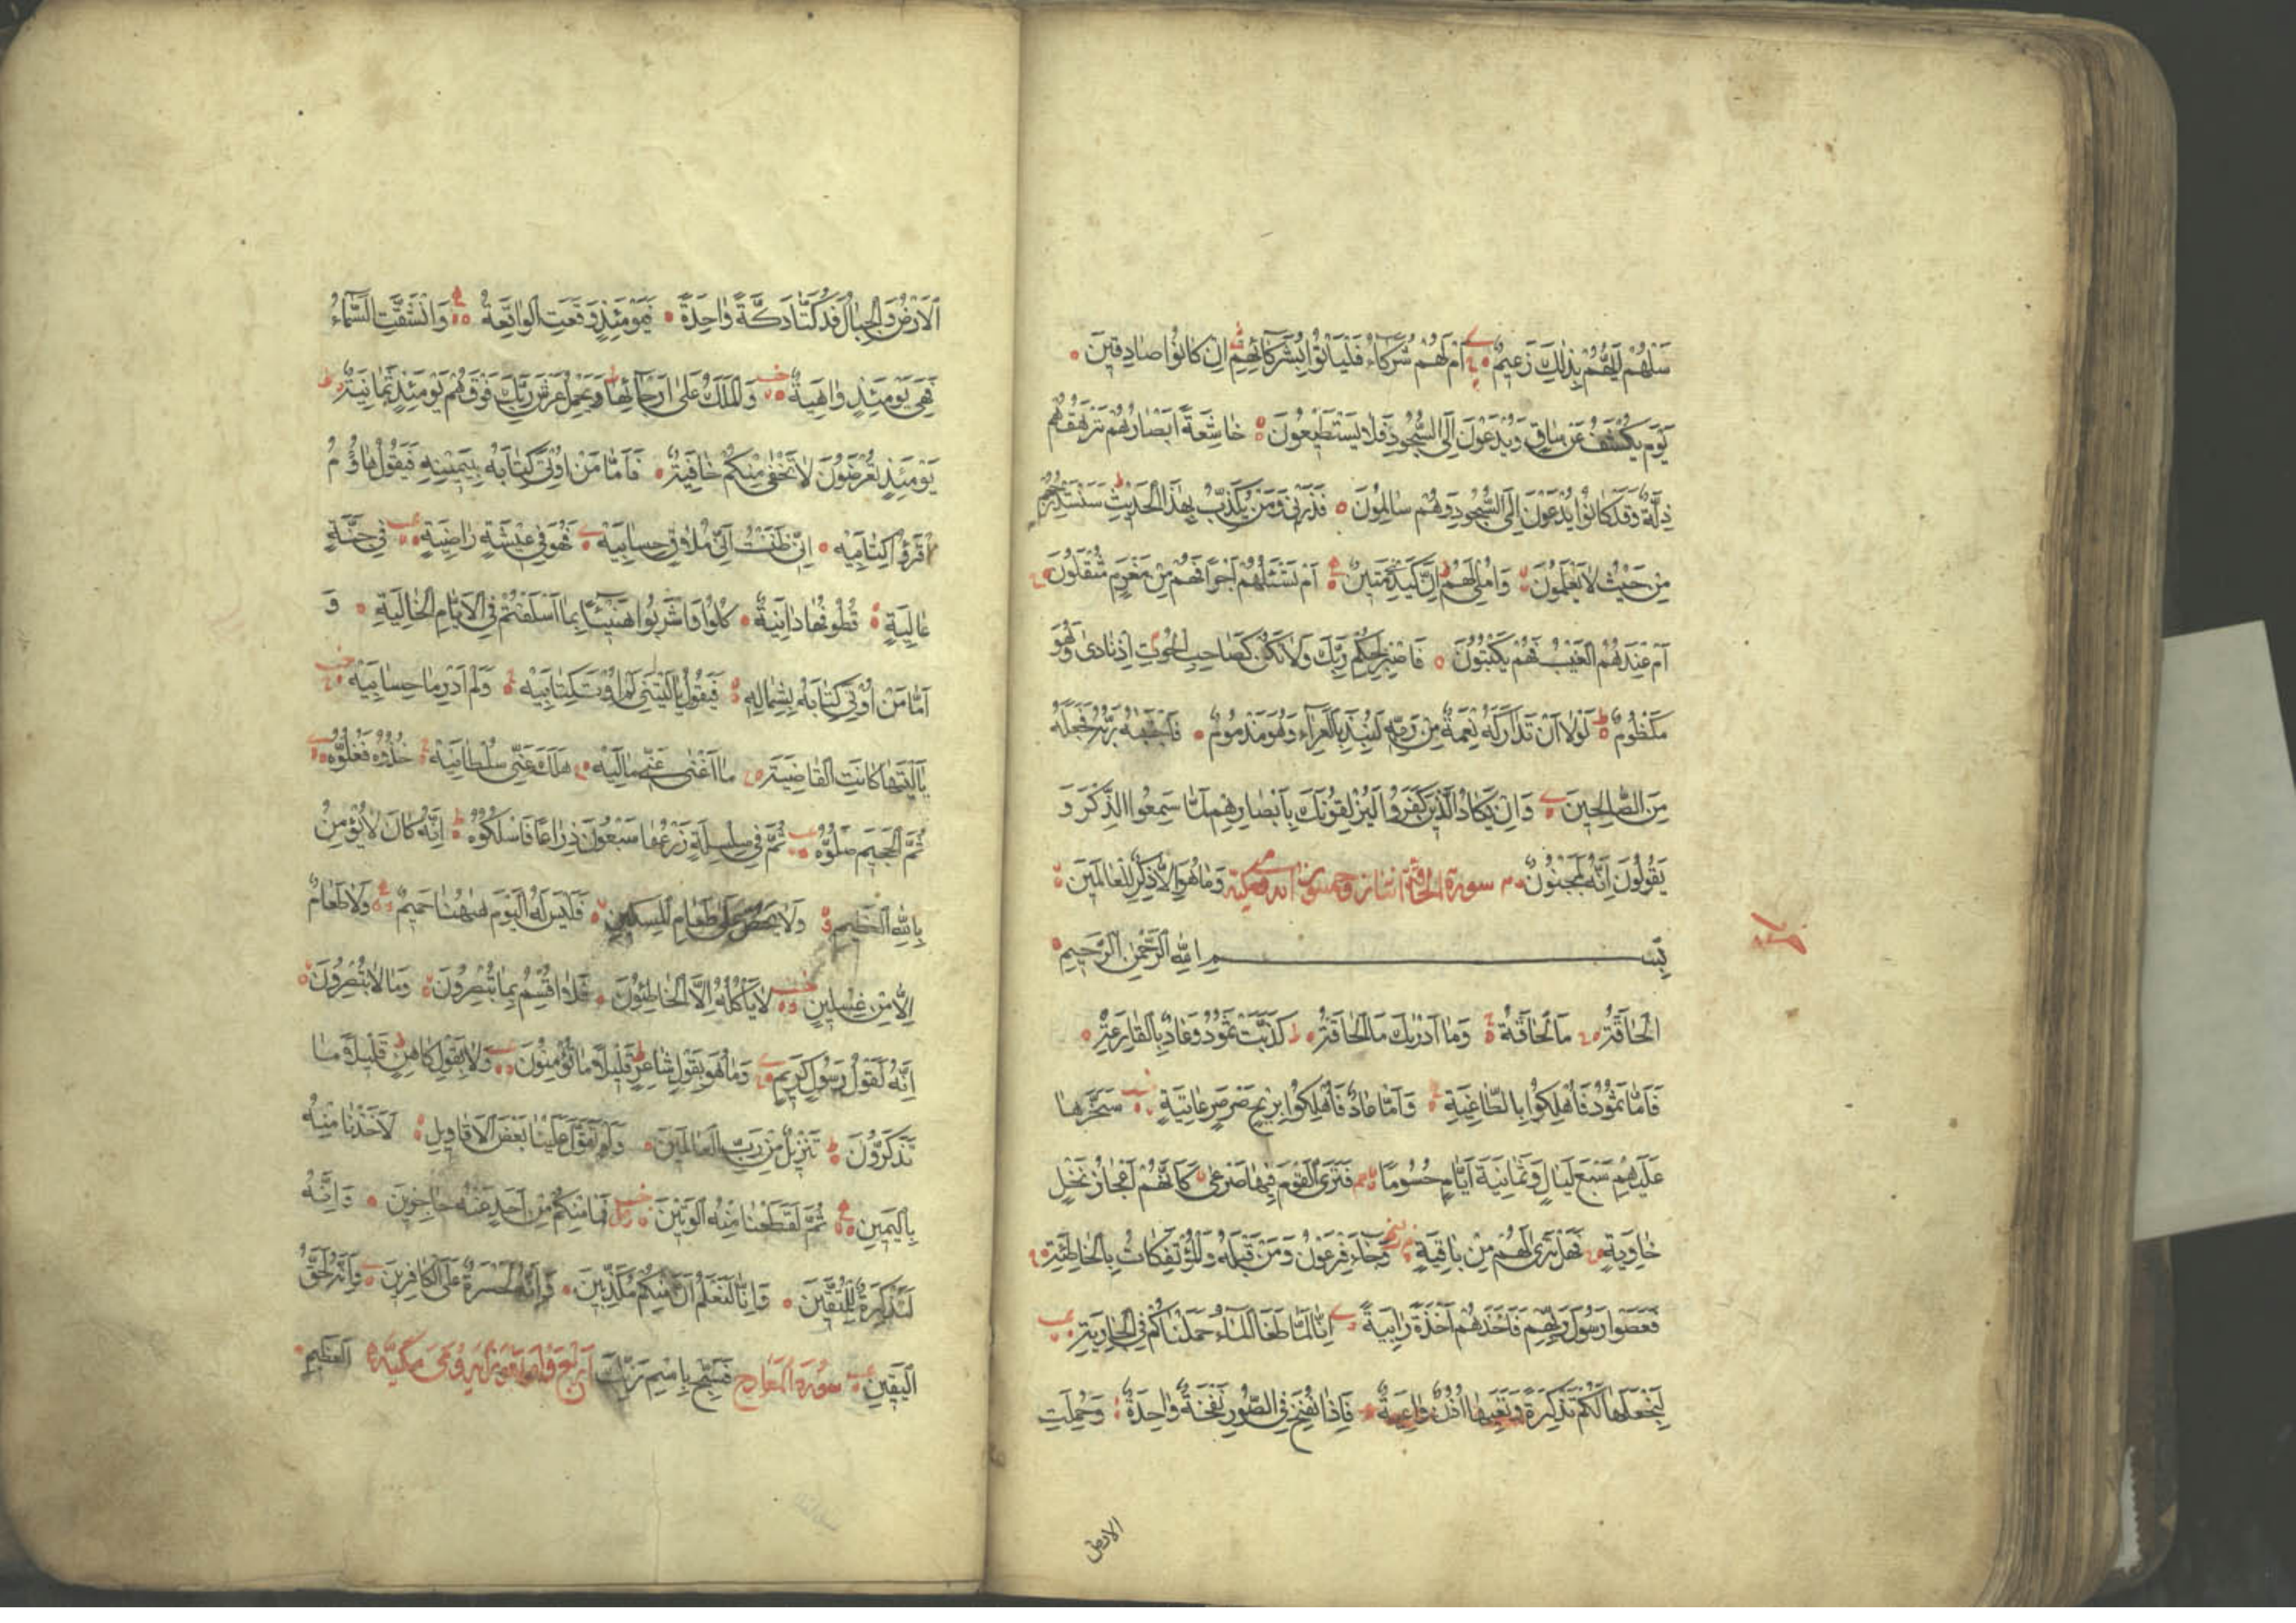 سَلْهُمْ اَيُّهُمْ بِذٰلِكَ زَعِيمٌ اَمْ لَهُمْ شُرَكَاءُ فَلْيَاْتُوا بِشُرَكَائِهِمْ اِنْ كَانُوا صَادِقِينَ
يَوْمَ يُكْشَفُ عَنْ سَاقٍ وَيُدْعَوْنَ اِلَى السُّجُودِ فَلَا يَسْتَطِيعُونَ خَاشِعَةً اَبْصَارُهُمْ تَرْهَقُهُمْ
ذِلَّةٌ وَقَدْ كَانُوا يُدْعَوْنَ اِلَى السُّجُودِ وَهُمْ سَالِمُونَ فَذَرْنِي وَمَنْ يُكَذِّبُ بِهٰذَا الْحَدِيثِ سَنَسْتَدْرِجُهُمْ
مِنْ حَيْثُ لَا يَعْلَمُونَ وَاُمْلِي لَهُمْ اِنَّ كَيْدِي مَتِينٌ اَمْ تَسْئَلُهُمْ اَجْرًا فَهُمْ مِنْ مَغْرَمٍ مُثْقَلُونَ
اَمْ عِنْدَهُمُ الْغَيْبُ فَهُمْ يَكْتُبُونَ فَاصْبِرْ لِحُكْمِ رَبِّكَ وَلَا تَكُنْ كَصَاحِبِ الْحُوتِ اِذْ نَادٰى وَهُوَ
مَكْظُومٌ لَوْلَا اَنْ تَدَارَكَهُ نِعْمَةٌ مِنْ رَبِّهِ لَنُبِذَ بِالْعَرَاءِ وَهُوَ مَذْمُومٌ فَاجْتَبٰيهُ رَبُّهُ فَجَعَلَهُ
مِنَ الصَّالِحِينَ وَاِنْ يَكَادُ الَّذِينَ كَفَرُوا لَيُزْلِقُونَكَ بِاَبْصَارِهِمْ لَمَّا سَمِعُوا الذِّكْرَ وَ
يَقُولُونَ اِنَّهُ لَمَجْنُونٌ سورة الحاقة اثنان وخمسون آية مكية وَمَا هُوَ اِلَّا ذِكْرٌ لِلْعَالَمِينَ
بِسْمِ اللّٰهِ الرَّحْمٰنِ الرَّحِيمِ
اَلْحَاقَّةُ مَا الْحَاقَّةُ وَمَا اَدْرٰيكَ مَا الْحَاقَّةُ كَذَّبَتْ ثَمُودُ وَعَادٌ بِالْقَارِعَةِ
فَاَمَّا ثَمُودُ فَاُهْلِكُوا بِالطَّاغِيَةِ وَاَمَّا عَادٌ فَاُهْلِكُوا بِرِيحٍ صَرْصَرٍ عَاتِيَةٍ سَخَّرَهَا
عَلَيْهِمْ سَبْعَ لَيَالٍ وَثَمَانِيَةَ اَيَّامٍ حُسُومًا فَتَرَى الْقَوْمَ فِيهَا صَرْعٰى كَاَنَّهُمْ اَعْجَازُ نَخْلٍ
خَاوِيَةٍ فَهَلْ تَرٰى لَهُمْ مِنْ بَاقِيَةٍ وَجَاءَ فِرْعَوْنُ وَمَنْ قَبْلَهُ وَالْمُؤْتَفِكَاتُ بِالْخَاطِئَةِ
فَعَصَوْا رَسُولَ رَبِّهِمْ فَاَخَذَهُمْ اَخْذَةً رَابِيَةً اِنَّا لَمَّا طَغَا الْمَاءُ حَمَلْنَاكُمْ فِي الْجَارِيَةِ
لِنَجْعَلَهَا لَكُمْ تَذْكِرَةً وَتَعِيَهَا اُذُنٌ وَاعِيَةٌ فَاِذَا نُفِخَ فِي الصُّورِ نَفْخَةٌ وَاحِدَةٌ وَحُمِلَتِ
الارض
اَلْاَرْضُ وَالْجِبَالُ فَدُكَّتَا دَكَّةً وَاحِدَةً فَيَوْمَئِذٍ وَقَعَتِ الْوَاقِعَةُ وَانْشَقَّتِ السَّمَاءُ
فَهِيَ يَوْمَئِذٍ وَاهِيَةٌ وَالْمَلَكُ عَلٰى اَرْجَائِهَا وَيَحْمِلُ عَرْشَ رَبِّكَ فَوْقَهُمْ يَوْمَئِذٍ ثَمَانِيَةٌ
يَوْمَئِذٍ تُعْرَضُونَ لَا تَخْفٰى مِنْكُمْ خَافِيَةٌ فَاَمَّا مَنْ اُوتِيَ كِتَابَهُ بِيَمِينِهِ فَيَقُولُ هَاؤُمُ
اقْرَؤُا كِتَابِيَهْ اِنِّي ظَنَنْتُ اَنِّي مُلَاقٍ حِسَابِيَهْ فَهُوَ فِي عِيشَةٍ رَاضِيَةٍ فِي جَنَّةٍ
عَالِيَةٍ قُطُوفُهَا دَانِيَةٌ كُلُوا وَاشْرَبُوا هَنِيئًا بِمَا اَسْلَفْتُمْ فِي الْاَيَّامِ الْخَالِيَةِ وَ
اَمَّا مَنْ اُوتِيَ كِتَابَهُ بِشِمَالِهِ فَيَقُولُ يَا لَيْتَنِي لَمْ اُوتَ كِتَابِيَهْ وَلَمْ اَدْرِ مَا حِسَابِيَهْ
يَا لَيْتَهَا كَانَتِ الْقَاضِيَةَ مَا اَغْنٰى عَنِّي مَالِيَهْ هَلَكَ عَنِّي سُلْطَانِيَهْ خُذُوهُ فَغُلُّوهُ
ثُمَّ الْجَحِيمَ صَلُّوهُ ثُمَّ فِي سِلْسِلَةٍ ذَرْعُهَا سَبْعُونَ ذِرَاعًا فَاسْلُكُوهُ اِنَّهُ كَانَ لَا يُؤْمِنُ
بِاللّٰهِ الْعَظِيمِ وَلَا يَحُضُّ عَلٰى طَعَامِ الْمِسْكِينِ فَلَيْسَ لَهُ الْيَوْمَ هٰهُنَا حَمِيمٌ وَلَا طَعَامٌ
اِلَّا مِنْ غِسْلِينٍ لَا يَاْكُلُهُ اِلَّا الْخَاطِئُونَ فَلَا اُقْسِمُ بِمَا تُبْصِرُونَ وَمَا لَا تُبْصِرُونَ
اِنَّهُ لَقَوْلُ رَسُولٍ كَرِيمٍ وَمَا هُوَ بِقَوْلِ شَاعِرٍ قَلِيلًا مَا تُؤْمِنُونَ وَلَا بِقَوْلِ كَاهِنٍ قَلِيلًا مَا
تَذَكَّرُونَ تَنْزِيلٌ مِنْ رَبِّ الْعَالَمِينَ وَلَوْ تَقَوَّلَ عَلَيْنَا بَعْضَ الْاَقَاوِيلِ لَاَخَذْنَا مِنْهُ
بِالْيَمِينِ ثُمَّ لَقَطَعْنَا مِنْهُ الْوَتِينَ فَمَا مِنْكُمْ مِنْ اَحَدٍ عَنْهُ حَاجِزِينَ وَاِنَّهُ
لَتَذْكِرَةٌ لِلْمُتَّقِينَ وَاِنَّا لَنَعْلَمُ اَنَّ مِنْكُمْ مُكَذِّبِينَ وَاِنَّهُ لَحَسْرَةٌ عَلَى الْكَافِرِينَ وَاِنَّهُ لَحَقُّ
الْيَقِينِ سُورَةُ الْمَعَارِجِ فَسَبِّحْ بِاسْمِ رَبِّكَ اَرْبَعُ وَاَرْبَعُونَ اٰيَةً وَهِيَ مَكِّيَّةٌ الْعَظِيمِ